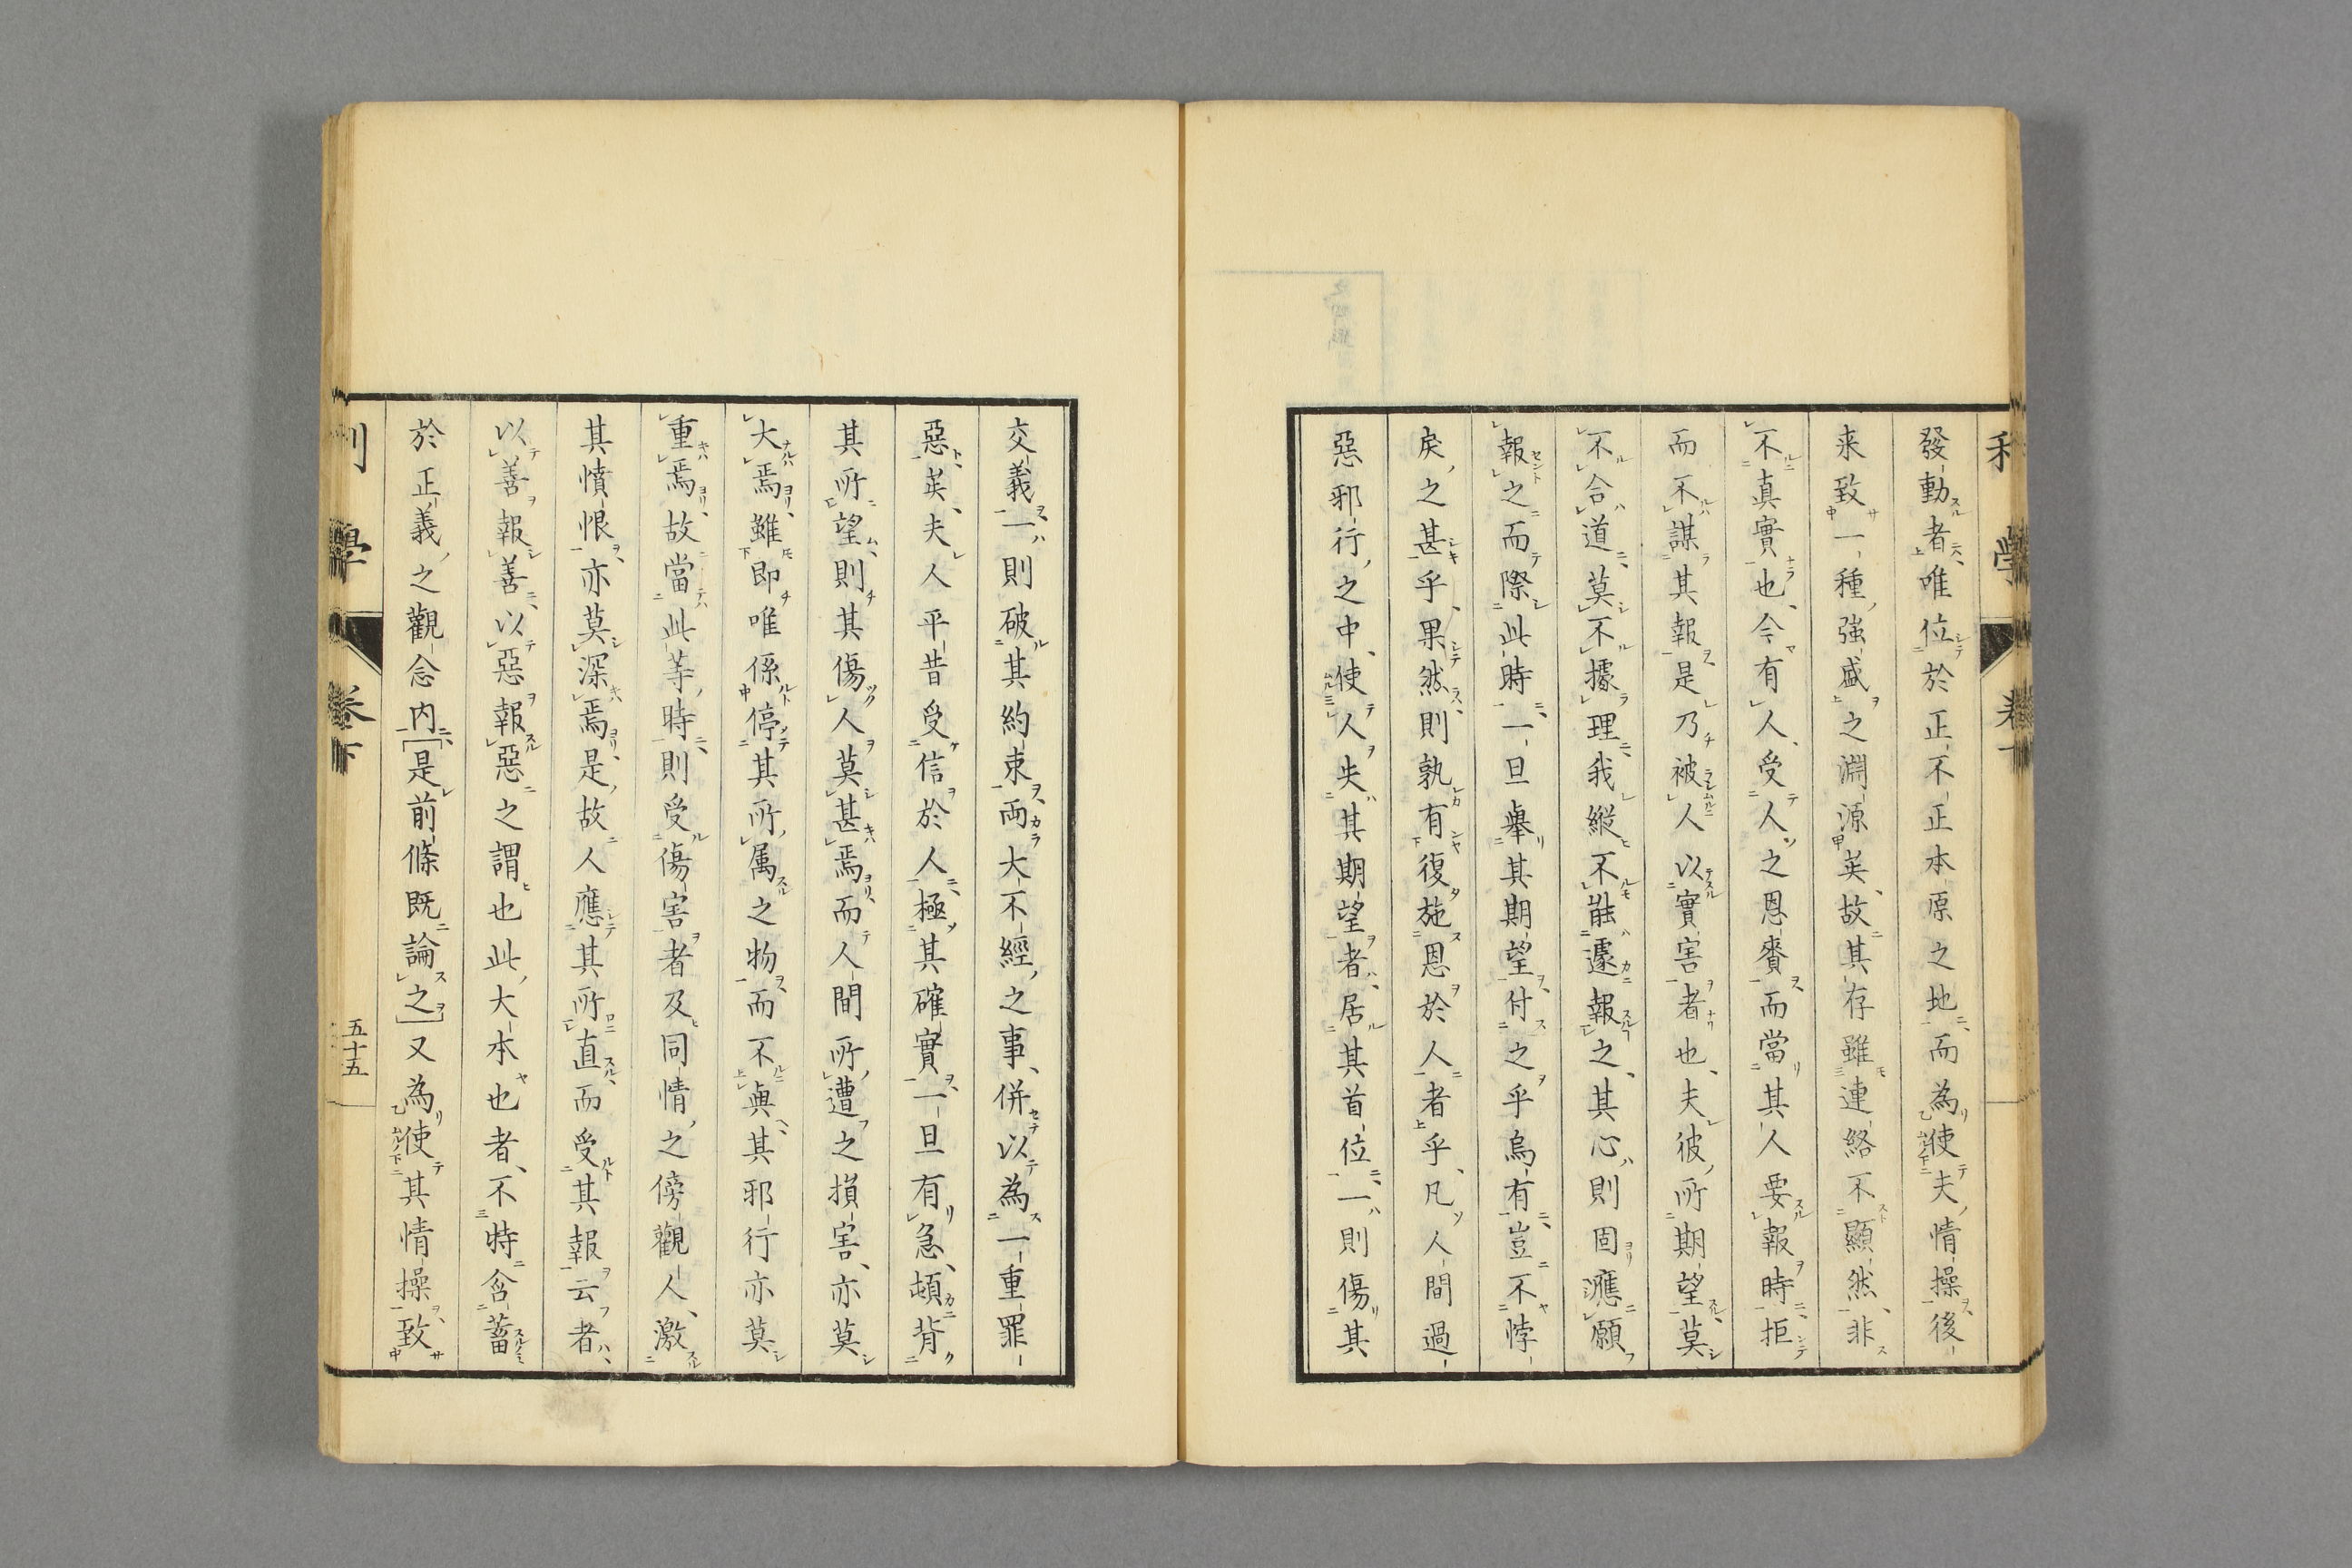 發動者唯位於正不正本原之地而為使夫情操後
来致一種強盛之淵源英故其存雖連絡不顯然非
不真實也今有人受人之恩賚而當其人要報時拒
而不謀其報是乃被人以實害者也夫彼所期望莫
不合道莫不據理我縦不能遽報之其心則固應願
報之而際此時一旦擧其期望付之乎烏有豈不悖
戾之甚乎果然則孰有復施恩於人者乎凡人間過
惡邪行之中使人失其期望者居其首位一則傷其
交義一則破其約束両大不經之事併以為一重罪
惡英夫人平昔受信於人極其確實一旦有急頓背
其所望則其傷人莫甚焉而人間所遭之損害亦莫
大焉雖即唯係停其所属之物而不與其邪行亦莫
重焉故當此等時則受傷害者及同情之傍觀人激
其憤恨亦莫深焉是故人應其所直而受其報云者
以善報善以惡報惡之謂也此大本也者不時含蓄
於正義之觀念内[是前條既論之]又為使其情操致
學 卷下
五十五